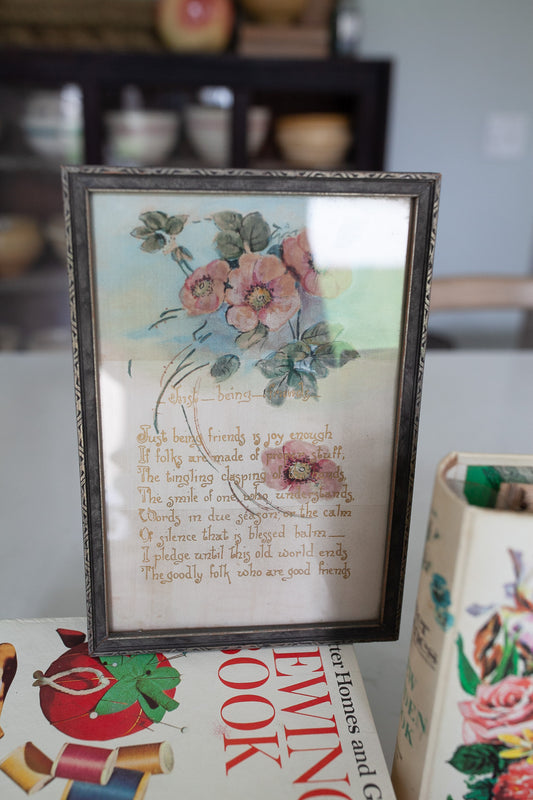 Just — being — friends
Just being friends is joy enough
If folks are made of proven stuff,
The tingling clasping of hands,
The smile of one who understands,
Words in due season or the calm
Of silence that is blessed balm—
I pledge until this old world ends
The goodly folk who are good friends
EWING
OOK
tter Homes and G